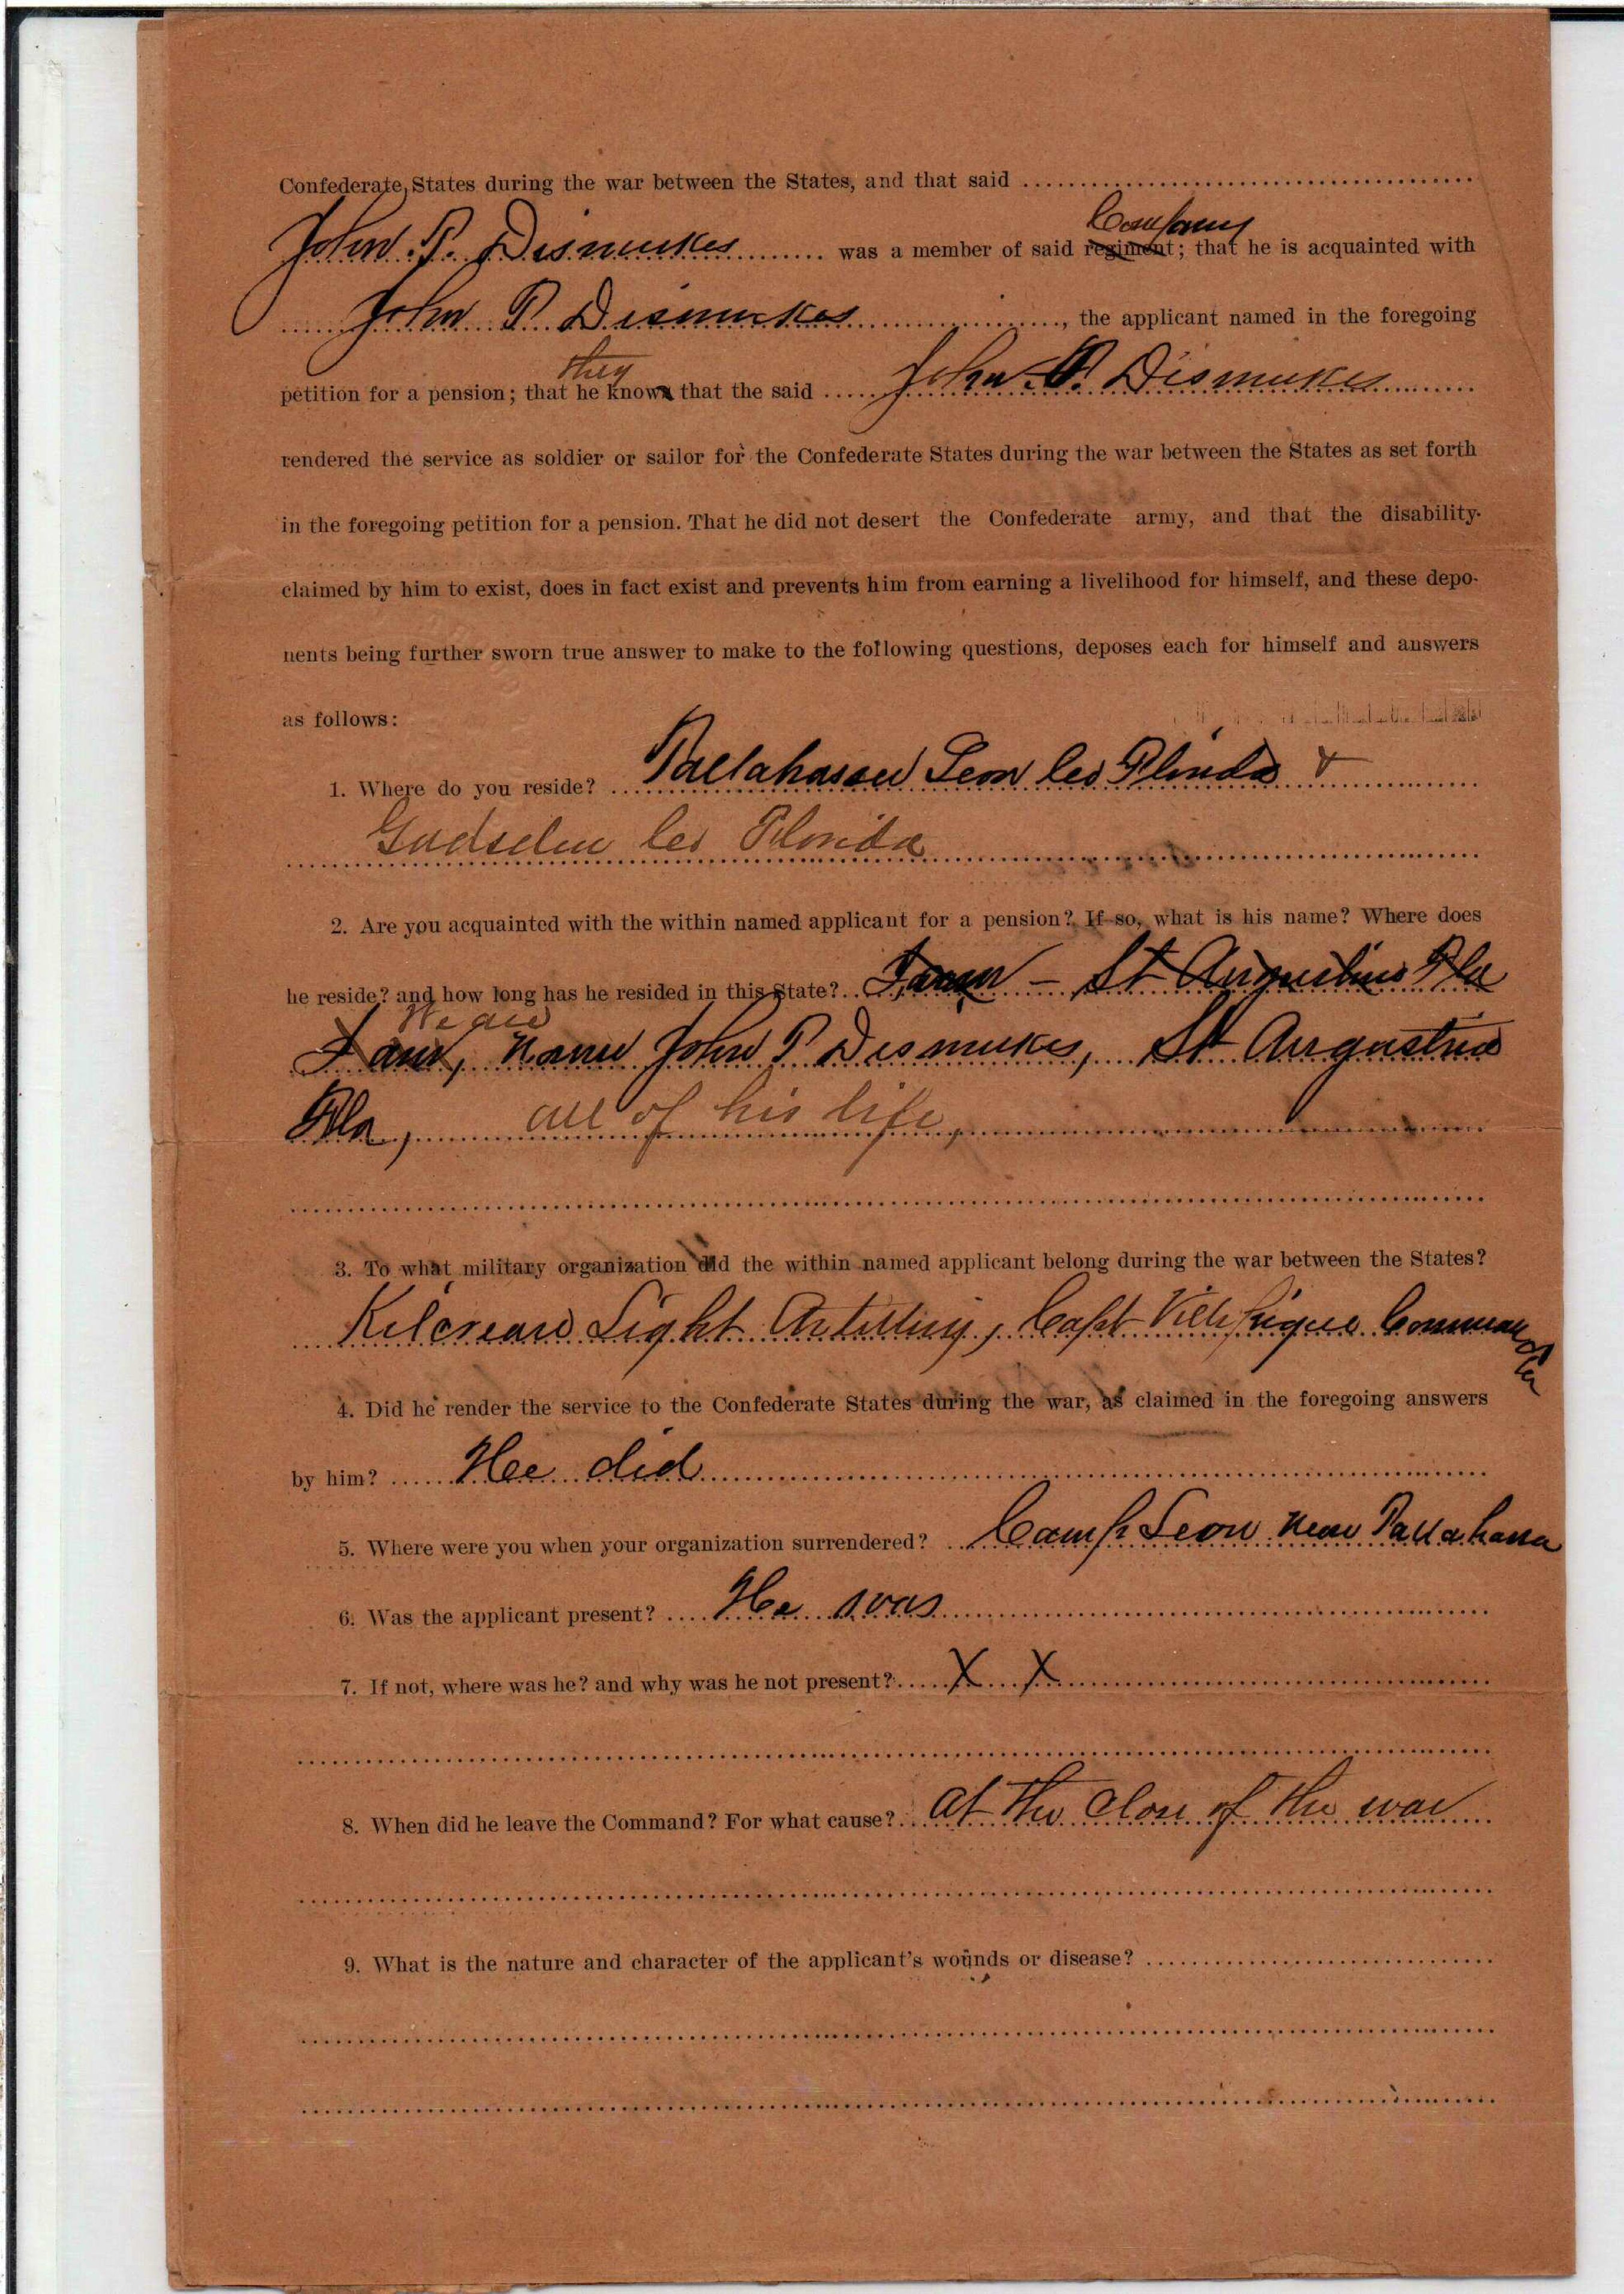 Confederate States during the war between the States, and that said
Company
John P. Dismukes was a member of said regiment; that he is acquainted with
John P. Dismukes, the applicant named in the foregoing
they
petition for a pension; that he knows that the said John P. Dismukes
rendered the service as soldier or sailor for the Confederate States during the war between the States as set forth
in the foregoing petition for a pension. That he did not desert the Confederate army, and that the disability
claimed by him to exist, does in fact exist and prevents him from earning a livelihood for himself, and these depo-
nents being further sworn true answer to make to the following questions, deposes each for himself and answers
as follows:
1. Where do you reside? Tallahassee Leon Co Florida &
Gadsden Co Florida
2. Are you acquainted with the within named applicant for a pension? If so, what is his name? Where does
he reside? and how long has he resided in this State? I am – St Augustine Fla
We are
I am, name John P Dismukes, St Augustine
Fla, all of his life,
3. To what military organization did the within named applicant belong during the war between the States?
Kilcrease Light Artillery, Capt Villepigue Commander
4. Did he render the service to the Confederate States during the war, as claimed in the foregoing answers
by him? He did
5. Where were you when your organization surrendered? Camp Leon near Tallahassa
6. Was the applicant present? He was
7. If not, where was he? and why was he not present? X X
8. When did he leave the Command? For what cause? At the Close of the war
9. What is the nature and character of the applicant's wounds or disease?